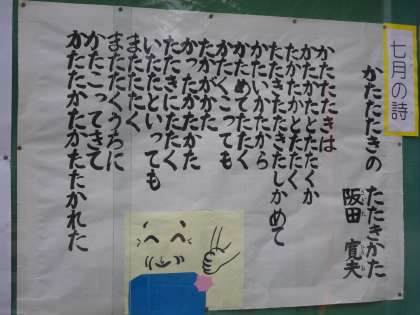 七月の詩
かたたたきの たたきかた
阪田 寛夫
かたたたきは
かたかたとたたくか
たかたかとたたく
たたきたたきたしかめて
かたいかたから
かためてたたく
かたくこっても
たかがかた
かったかたかた
たたきにたたく
いたたといっても
またたたく
またたくうちに
かたこってきて
かたたかたかたたかれた